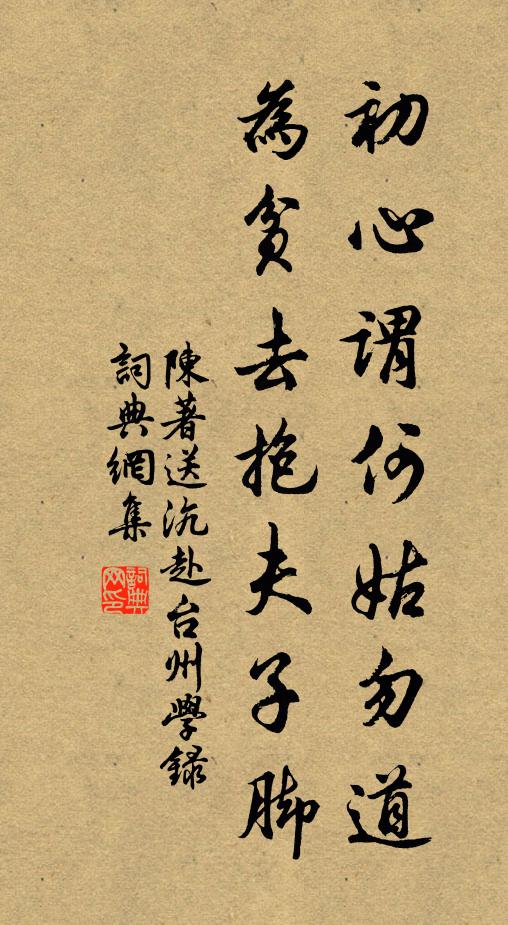 初心謂何姑勿道
為貧去抱夫子脚
陳著送沆赴台州學錄
詞典網集
詞典网印